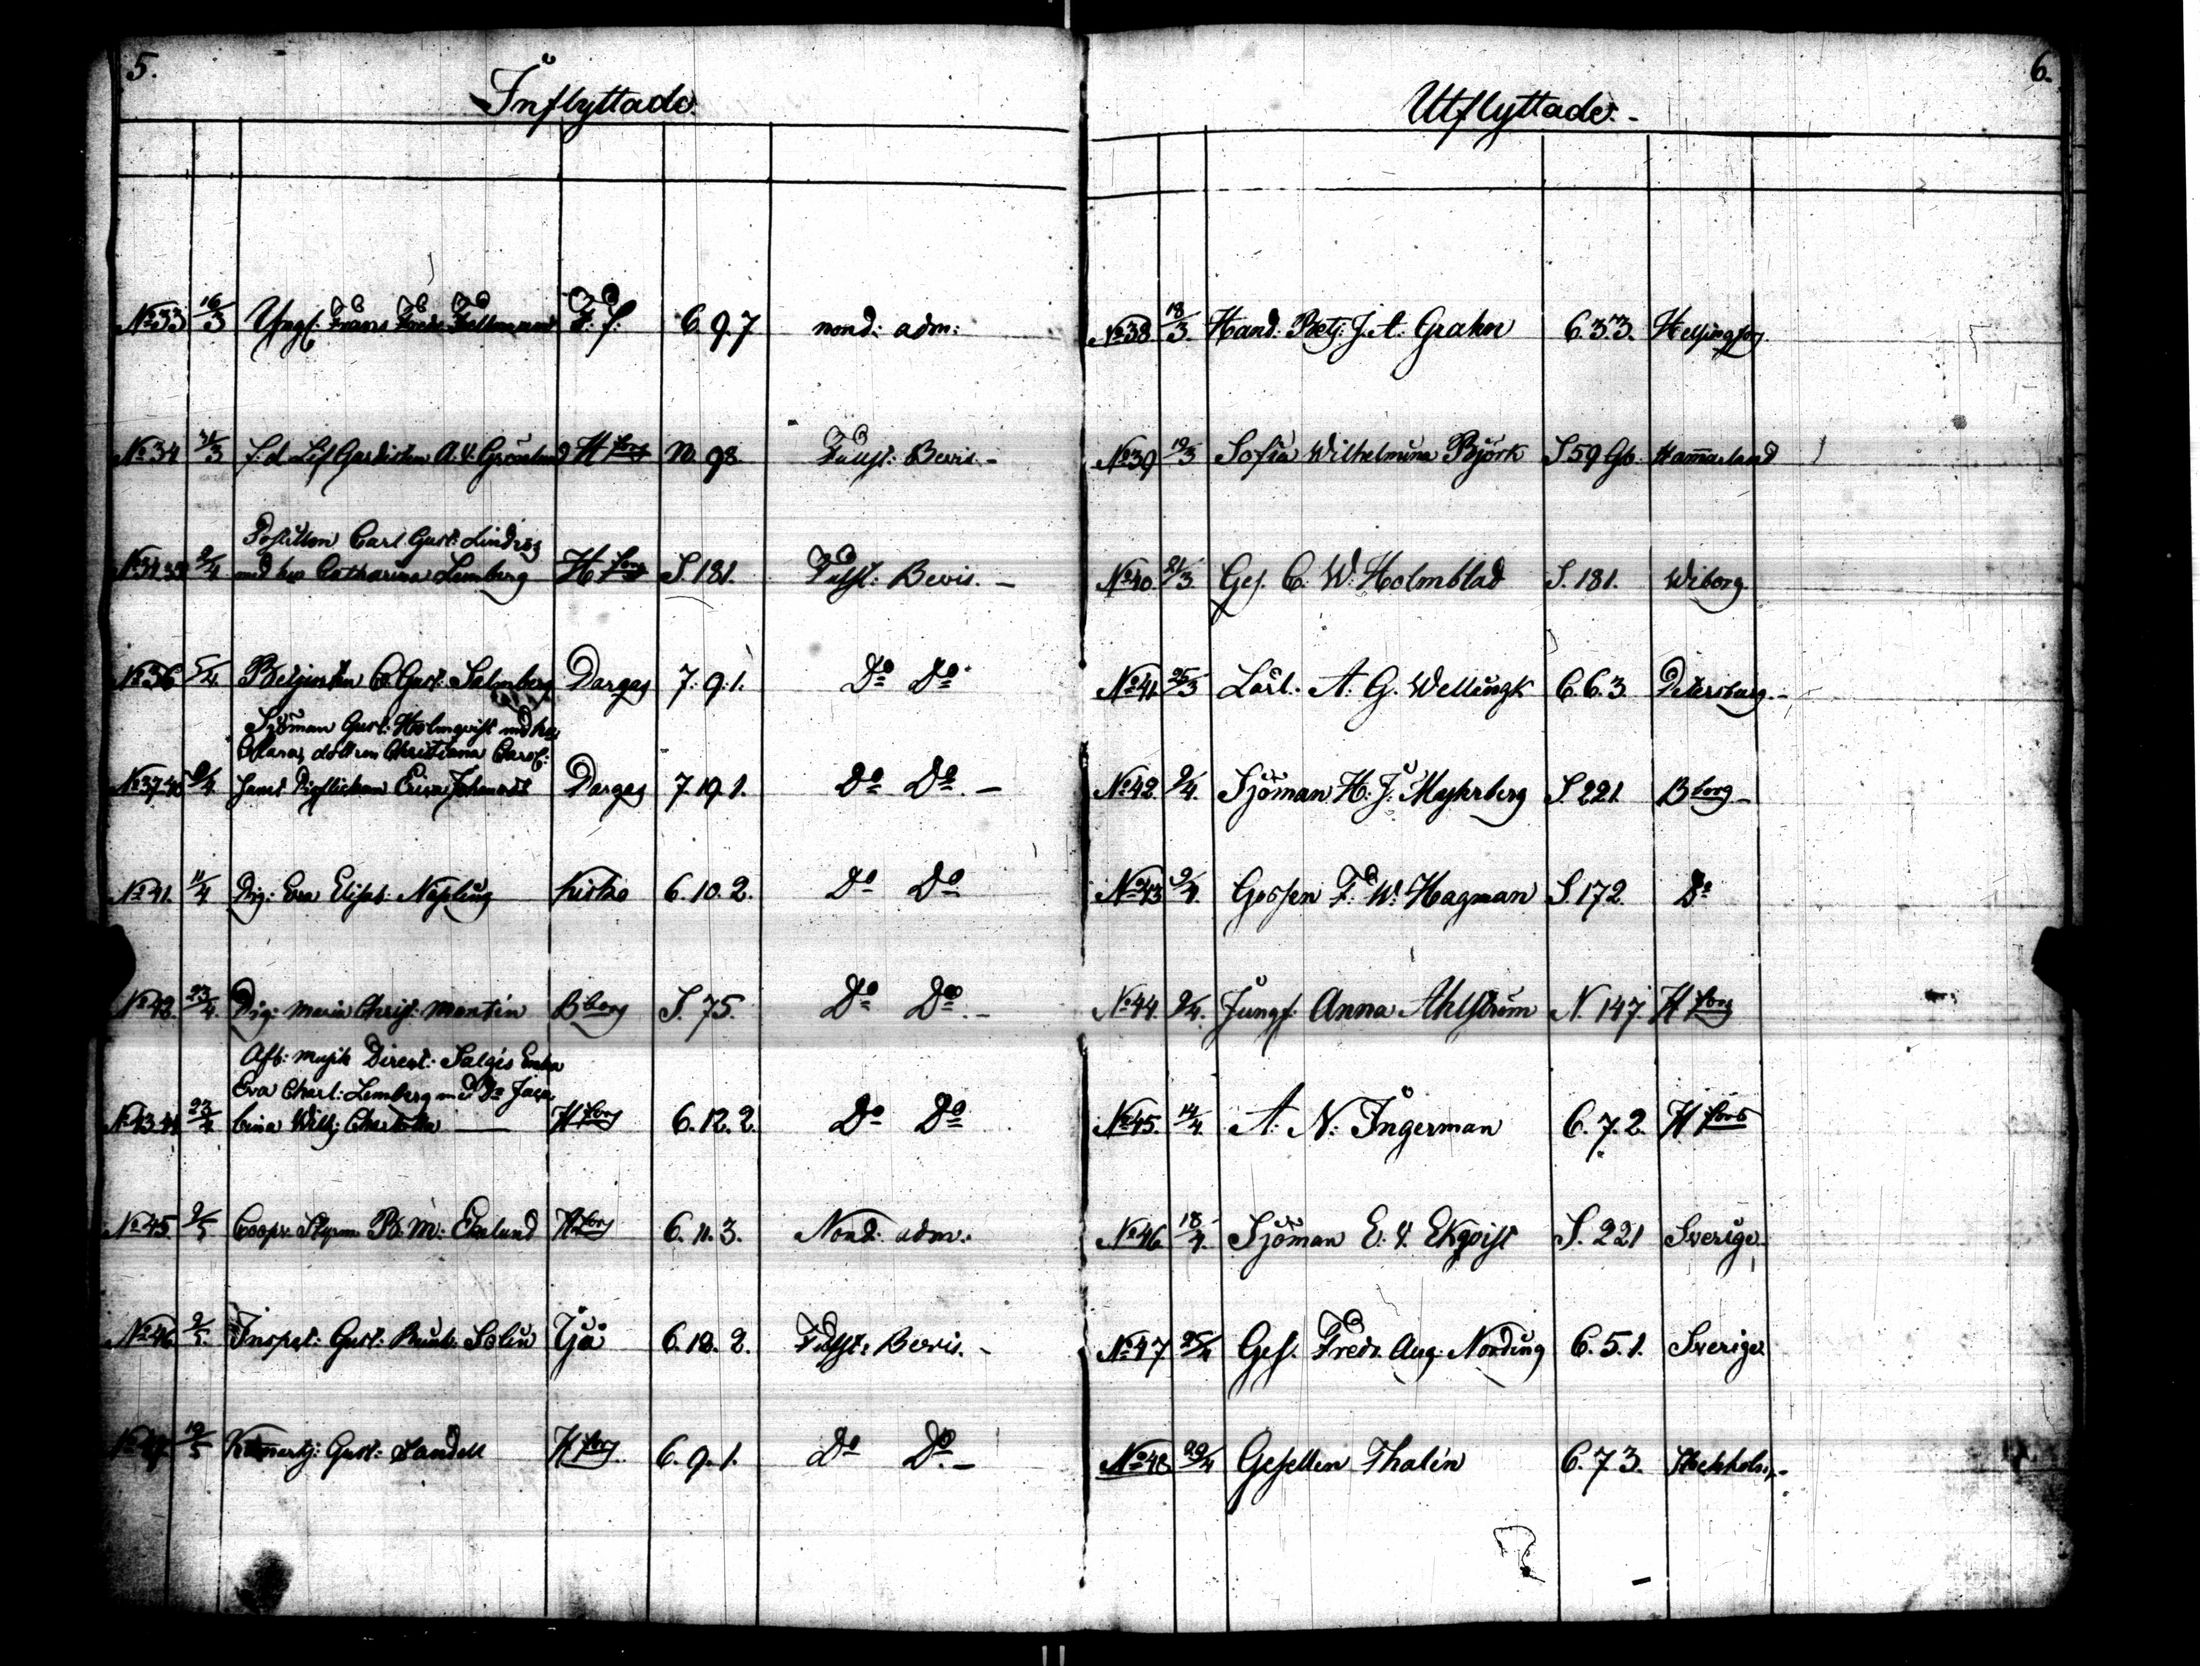 5.
Inflyttade.
No 33 16/3 Yngl: Frans Fredr Fellmann F. f. 6 9. 7 mond: adm:
No 34 21/3 f. d. Lif Gardisten A. V. Grönlund H fors N. 98 Fullst: Bevis. -
Postillon Carl Gust: Lindroos
No 34.35 2/4 med hu Catharina Lemberg H fors S. 181. Fullst: Bevis. -
No 36 5/4 Betjenten C. Gust: Salmberg Pargas 7. 9. 1. Do Do
Sjöman Gust: Holmqvist med hu
Clara, dottren Christiana Carol:
No 37.40 9/4 samt Pigflickan Eriva Johansdr Pargas 7. 19. 1. Do Do. -
No 41. 11/4 Pig: Eva Elisab: Näsling Kisko 6. 10. 2. Do Do
No 42. 23/4. Pig: Maria Christ: Montin Bborg S. 75. Do Do. -
Afl: Musik Direct: Salgés Enka
Eva Charl: Lemberg med Dr Jaco-
No 43.44 23/4 bina Wilh: Charlotta H fors 6. 12. 2. Do Do
No 45. 2/5 Coopv. Styrm B. M: Ekelund H fors 6. 11. 3. Mond: adm:
No 46 2/5. Inspet: Gust: Solin Ijo 6. 12. 2. Fullst: Bevis. -
No 47. 12/5 Gust: Sandell H fors. 6. 9. 1. Do Do. -
6.
Utflyttade. -
No 38. 18/3. Hand. Betj: J. A. Grahn 6. 3. 3. Helsingfors.
No 39 19/3 Sofia Wilhelmina Björk S 59 Gb. Hammarland
No 40. 21/3. Ges. C. W. Holmblad S. 181. Wiborg
No 41. 25/3 Lärl. A. G. Wellingk 6. 6. 3 Petersburg. -
No 42. 2/4. Sjöman H. J. Myhrberg S. 221. B borg -
No 43 2/4. Gossen F. W. Hagman S. 172. Do
No 44. 9/4. Jungf: Anna Ahlström N. 147. H fors
No 45. 14/4. A. N: Ingerman 6. 7. 2. H fors
No 46 18/4. Sjöman E. V. Ekqvist S. 221 Sverige
No 47. 25/4 Ges. Fredr. Aug. Nording 6. 5. 1. Sverige
No 48. 29/4 Gesellen Thalén 6. 7 3. Stockholm. -